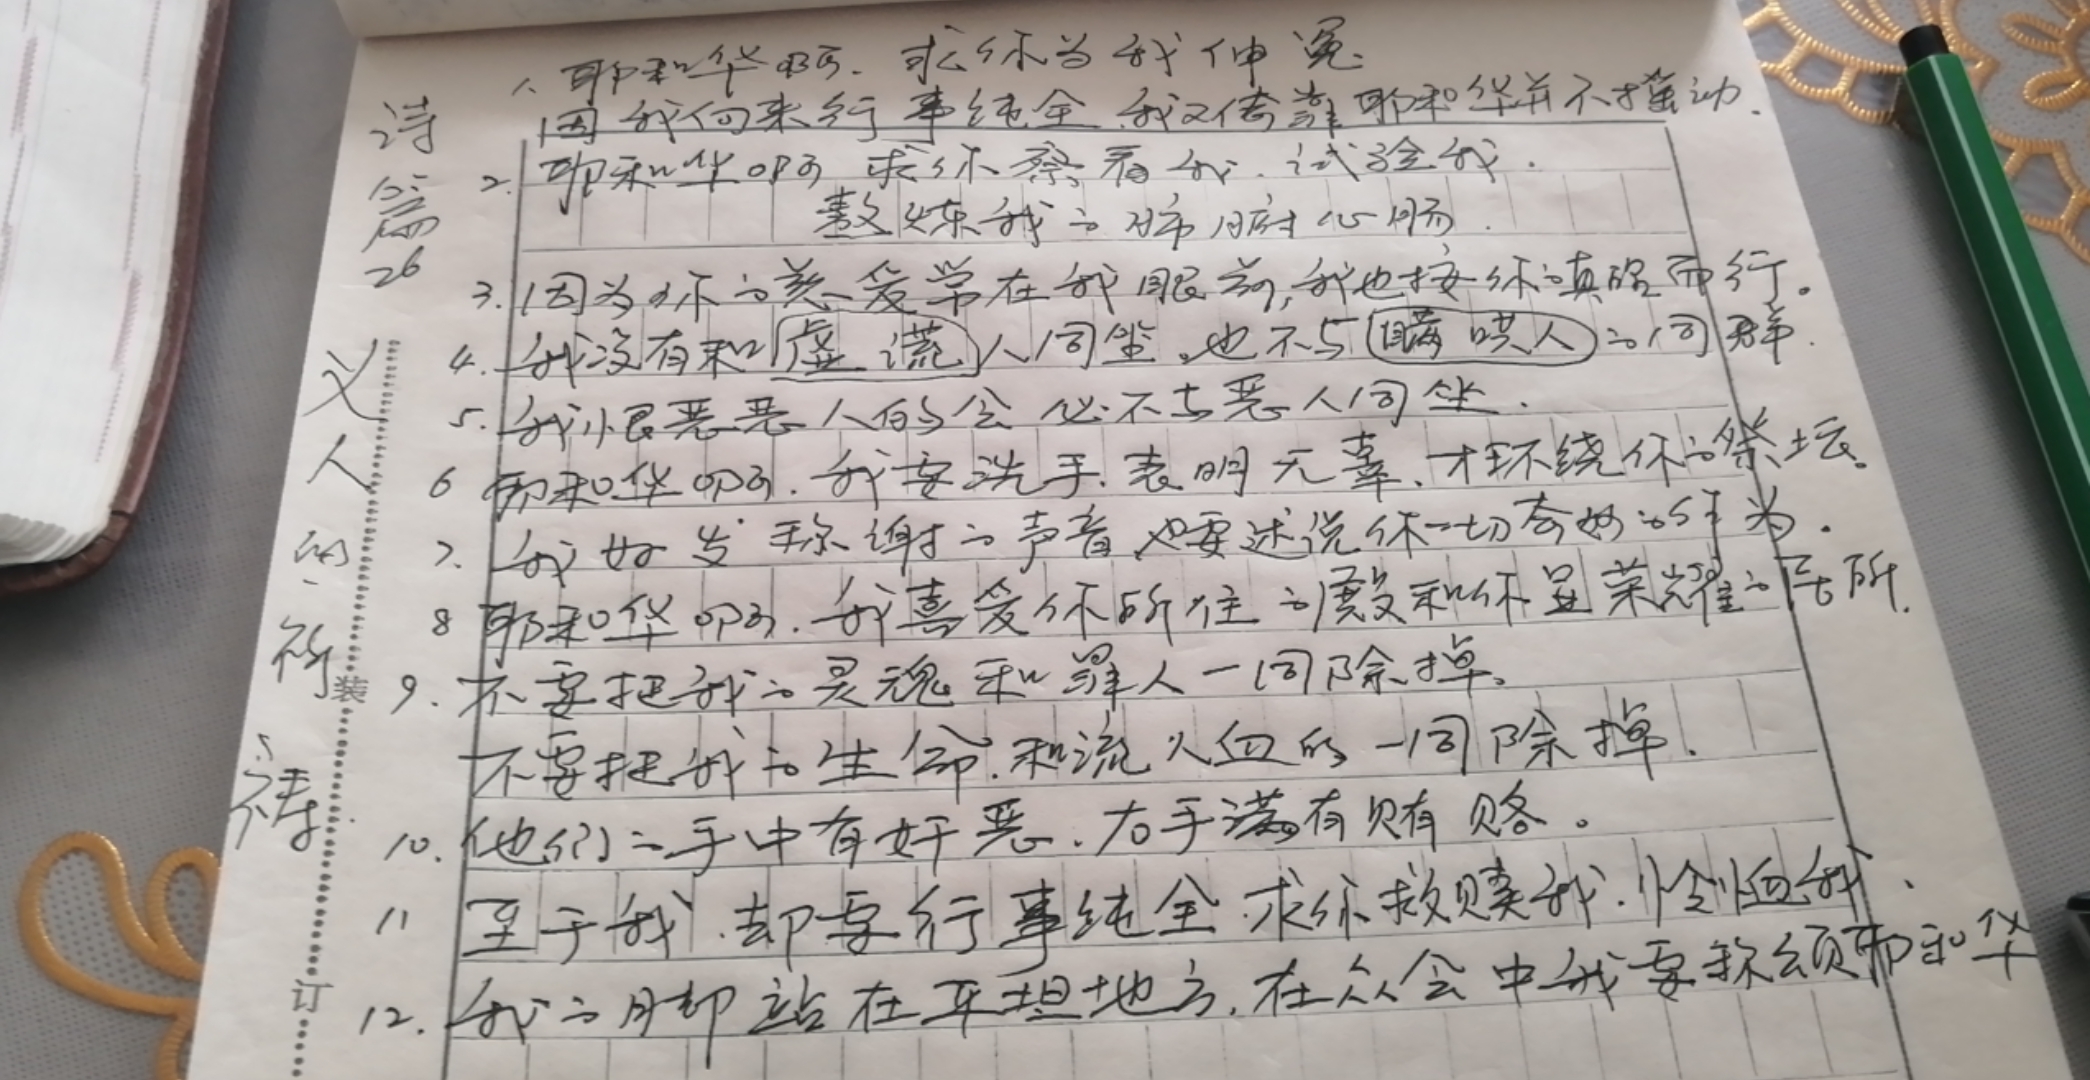 诗篇26
义人的祈祷
1. 耶和华啊.求你为我伸冤.
因我向来行事纯全.我又倚靠耶和华并不摇动.
2. 耶和华啊求你察看我.试验我.
熬炼我的肺腑心肠.
3. 因为你的慈爱常在我眼前,我也按你的真理而行。
4. 我没有和虚谎人同坐.也不与瞒哄人的同群.
5. 我恨恶恶人的会必不与恶人同坐.
6 耶和华啊.我要洗手表明无辜.才环绕你的祭坛。
7. 我好发称谢的声音也要述说你一切奇妙的作为.
8 耶和华啊.我喜爱你所住的殿和你显荣耀的居所.
9. 不要把我的灵魂和罪人一同除掉。
不要把我的生命.和流人血的一同除掉.
10. 他们的手中有奸恶.右手满有贿赂。
11 至于我.却要行事纯全.求你救赎我.怜恤我.
12. 我的脚站在平坦地方.在众会中我要称颂耶和华
装
订